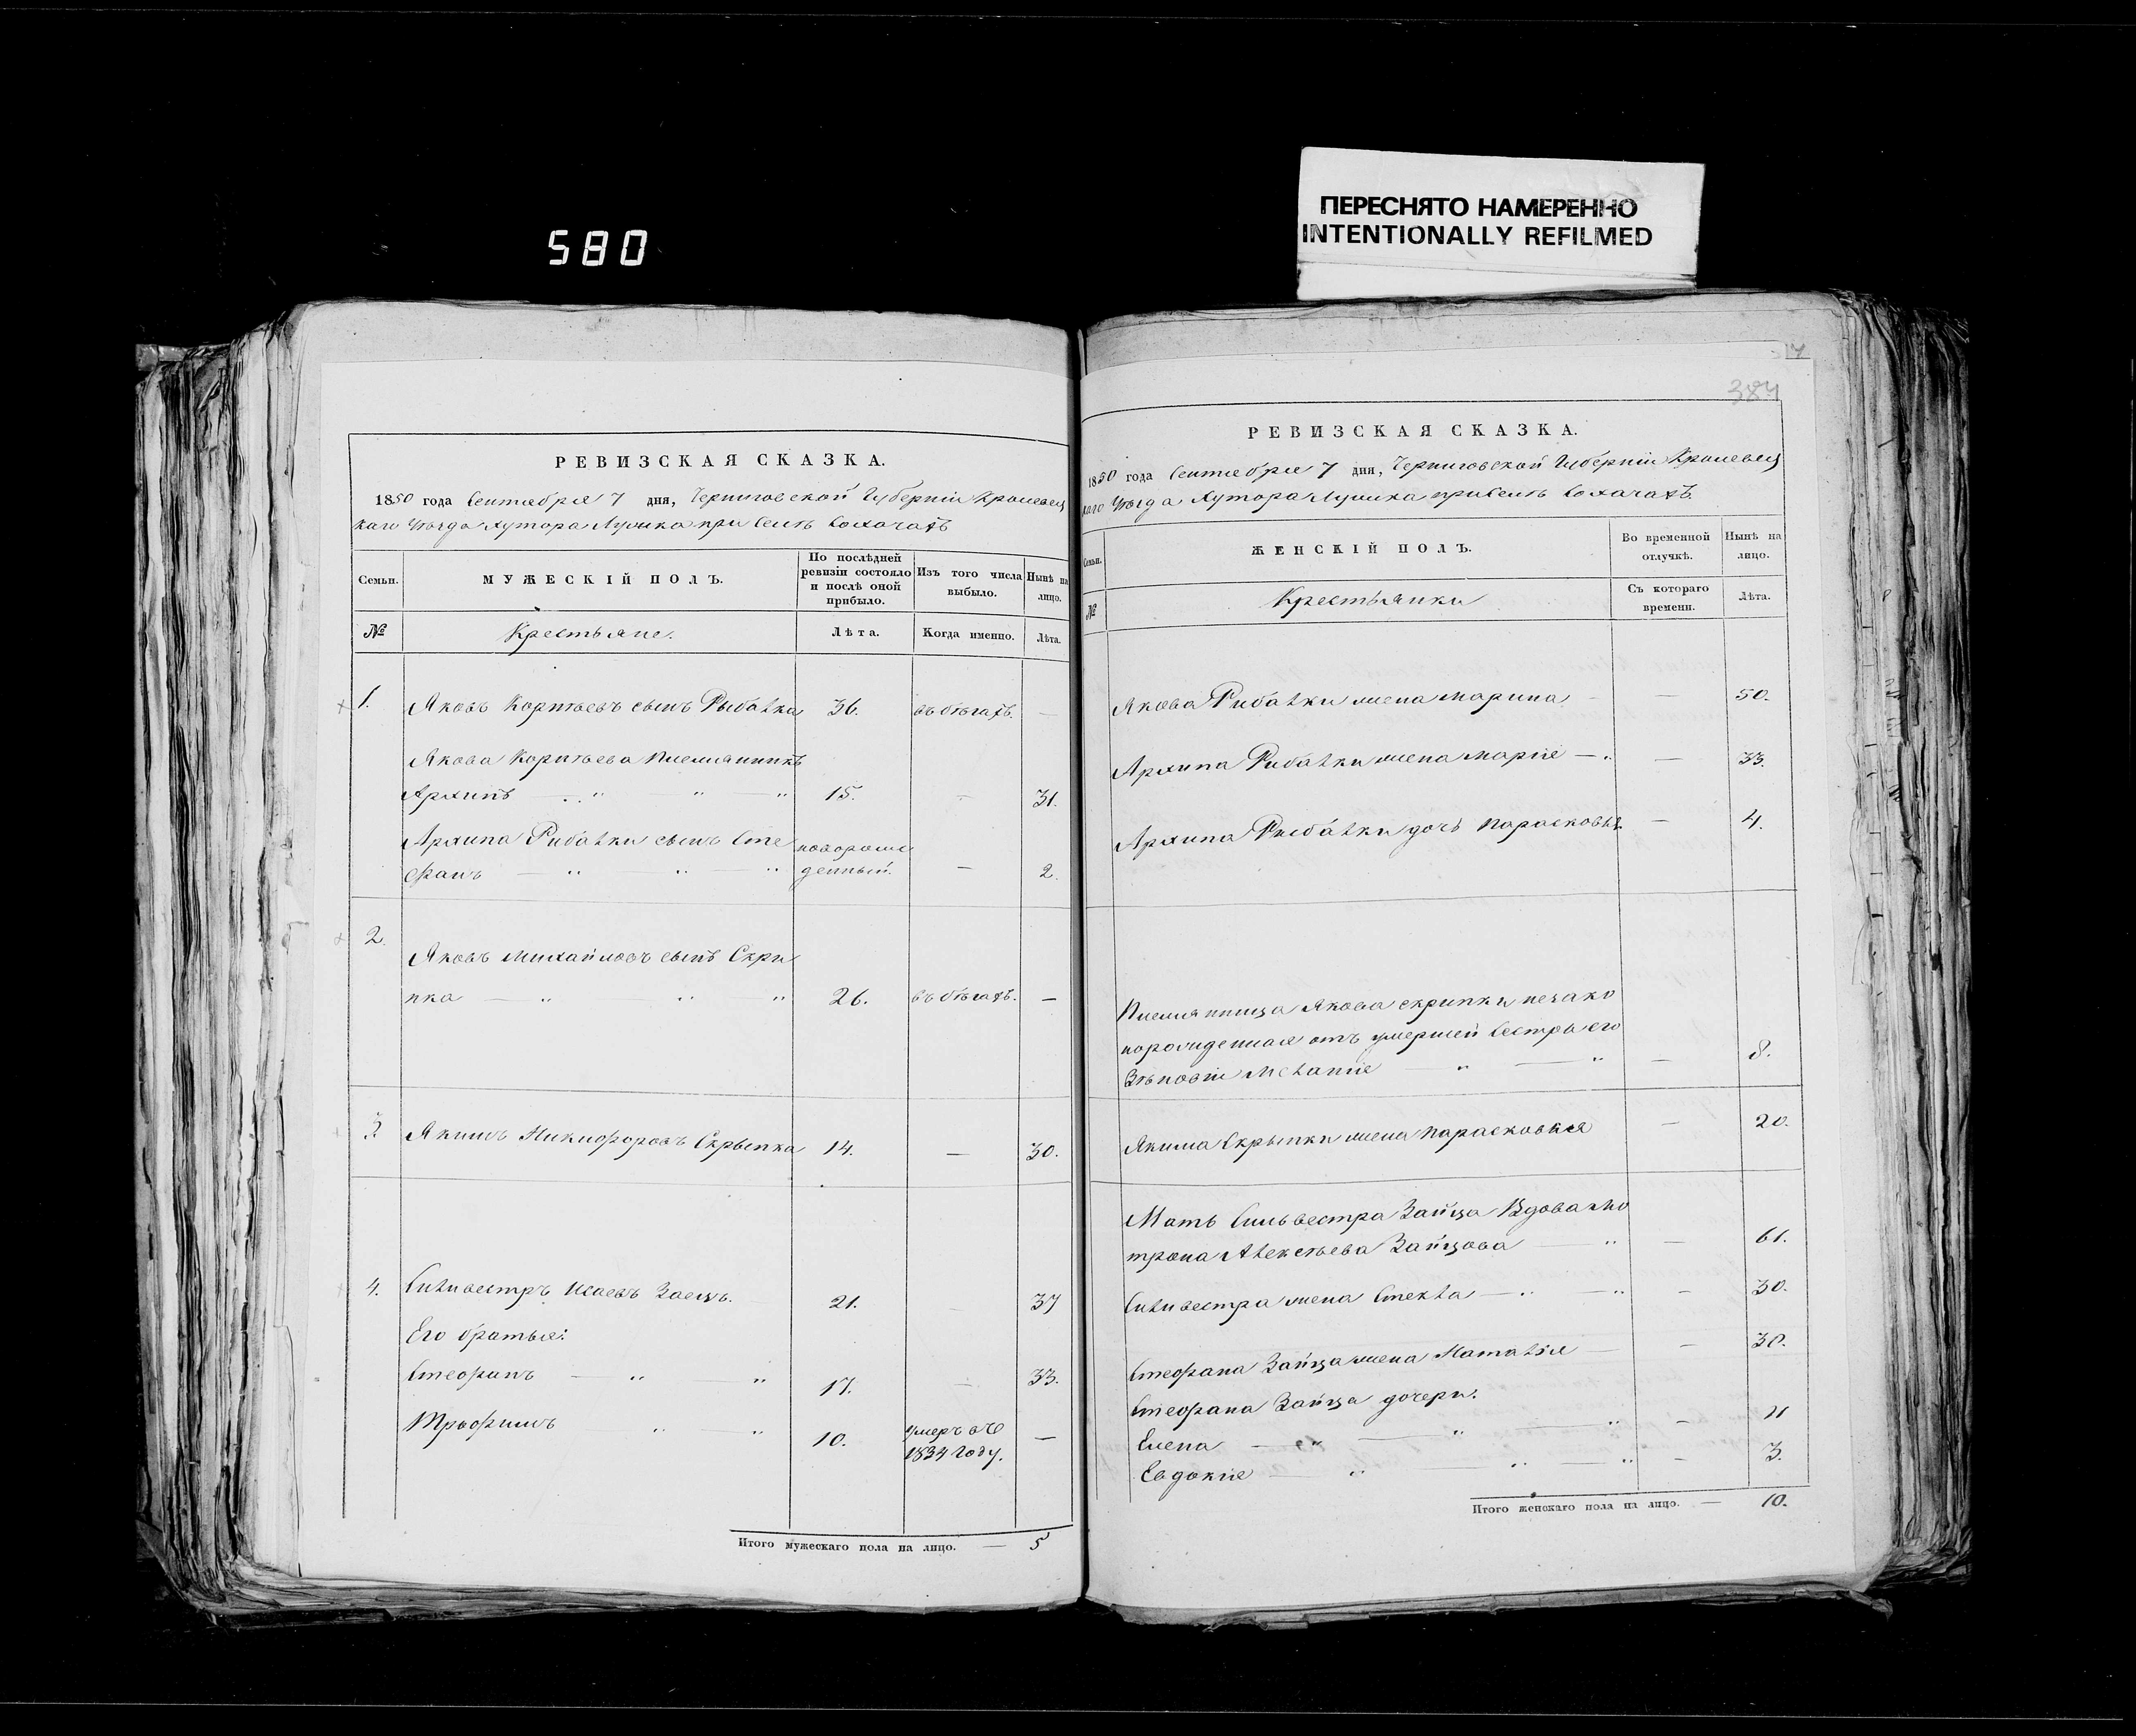 580
ПЕРЕСНЯТО НАМЕРЕННО
INTENTIONALLY REFILMED
РЕВИЗСКАЯ СКАЗКА.
1850 года Сентября 7 дня, Черниговской Губерніи Кролевец
каго Уѣзда Хутора при Селѣ
Семьи.
МУЖЕСКІЙ ПОЛЪ.
По послѣдней
ревизіи состояло
и послѣ оной
прибыло.
Изъ того числа
выбыло.
Нынѣ на
лицо.
№
Крестьяне.
Лѣта.
Когда именно.
Лѣта.
1.
Яковъ сынъ Рыбалка
36.
въ бѣгахъ.
—
Якова Племянникъ
Архипъ — „ — „ — „
15.
—
31.
Архипа Рибалки сынъ Сте
новорож
фанъ — „ — „ — „
денный.
—
2.
2.
Яковъ Михайловъ сынъ Скри
пка — „ — „ — „
26.
въ бѣгахъ.
—
3.
Якимъ Никифоровъ Скрыпка
14.
—
30.
4.
Силивестръ Исаевъ Заецъ.
21.
—
37
Его братья:
Стефанъ — „ — „
17.
—
33.
Трофимъ — „ — „
10.
умеръ въ
1834 году.
—
Итого мужескаго пола на лицо. — 5
384
РЕВИЗСКАЯ СКАЗКА.
1850 года Сентября 7 дня, Черниговской Губерніи Кролевец
каго Уѣзда Хутора при Селѣ
Семьи.
ЖЕНСКІЙ ПОЛЪ.
Во временной
отлучкѣ.
Нынѣ на
лицо.
№
Крестьянки
Съ котораго
времени.
Лѣта.
Якова Рибалки жена Марина — — 50.
Архипа Рибалки жена Марія — „ — 33.
Архипа Рибалки дочь Парасковья — 4.
Племянница Якова Скрипки незако
норожденная отъ умершей Сестры его
Зѣновіи Меланія — „ — „ — 8.
Якима Скрыпки жена Парасковья — 20.
Мать Сильвестра Зайца Вдова Мо
трона Алексѣева Зайцова — „ — 61.
Силивестра жена Стекла — „ — „ — 30.
Стефана Зайца жена Наталія — — 30.
Стефана Зайца дочери.
Елена — „ — „ — „ — 11
Евдокія — „ — „ — „ — 3.
Итого женскаго пола на лицо. — 10.